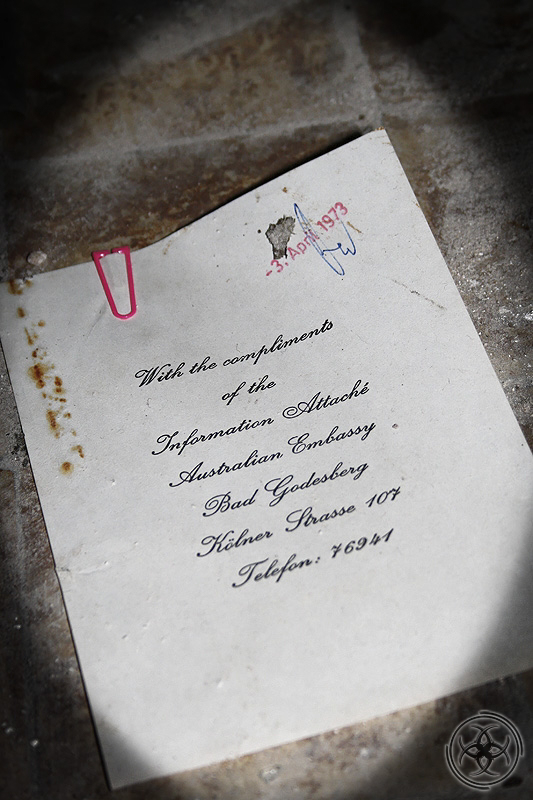 -3. April 1973
With the compliments
of the
Information Attaché
Australian Embassy
Bad Godesberg
Kölner Strasse 107
Telefon: 76941